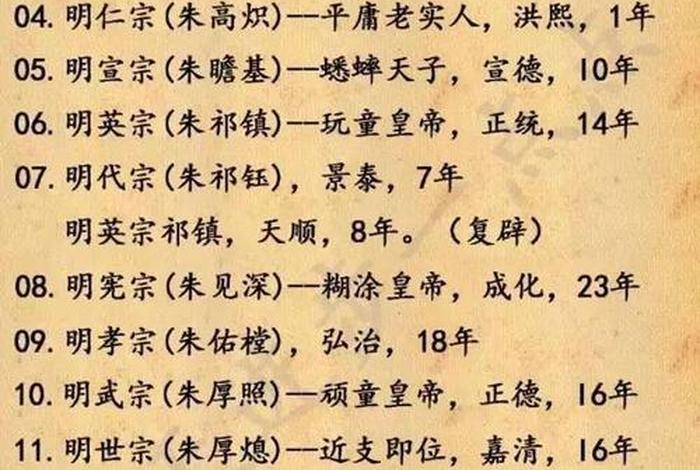 04.明仁宗(朱高炽)——平庸老实人，洪熙，1年
05.明宣宗(朱瞻基)——蟋蟀天子，宣德，10年
06.明英宗(朱祁镇)——玩童皇帝，正统，14年
07.明代宗(朱祁钰)，景泰，7年
明英宗祁镇，天顺，8年。（复辟）
08.明宪宗(朱见深)——糊涂皇帝，成化，23年
09.明孝宗(朱佑樘)，弘治，18年
10.明武宗(朱厚照)——顽童皇帝，正德，16年
11.明世宗(朱厚熜)——近支即位，嘉清，16年